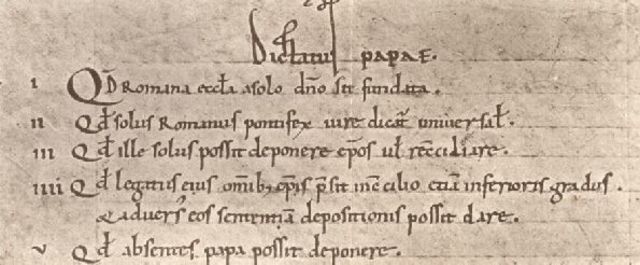 Dictatus papae.
i Qd Romana eccla a solo dno sit fundata.
ii Qd solus Romanus pontifex iure dicat universal.
iii Qd ille solus possit deponere epos ul reciliare.
iiii Qd legatus eius omib; epis psit in cilio etiā inferioris gradus.
& adversꝰ eos sententiā depositionis possit dare.
v Qd absentes papa possit deponere.